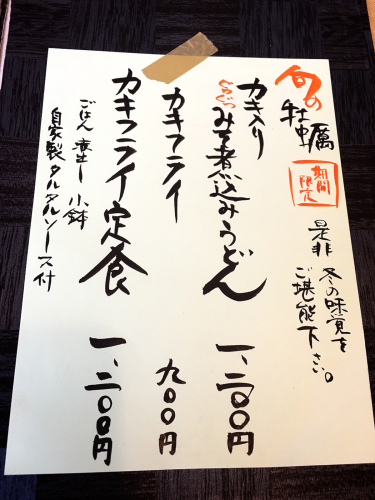 旬の牡蠣
期間限定
是非 冬の味覚を
ご堪能下さい。
カキ入り
ぐつぐつ
みそ煮込みうどん 一、二〇〇円
カキフライ 九〇〇円
カキフライ定食 一、二〇〇円
ごはん 煮出し 小鉢
自家製タルタルソース付